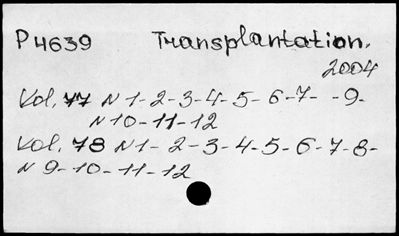 P4639 Transplantation.
2004
Vol. 77 N 1-2-3-4-5-6-7- -9-
N 10-11-12
Vol. 78 N 1-2-3-4-5-6-7-8-
N 9-10-11-12